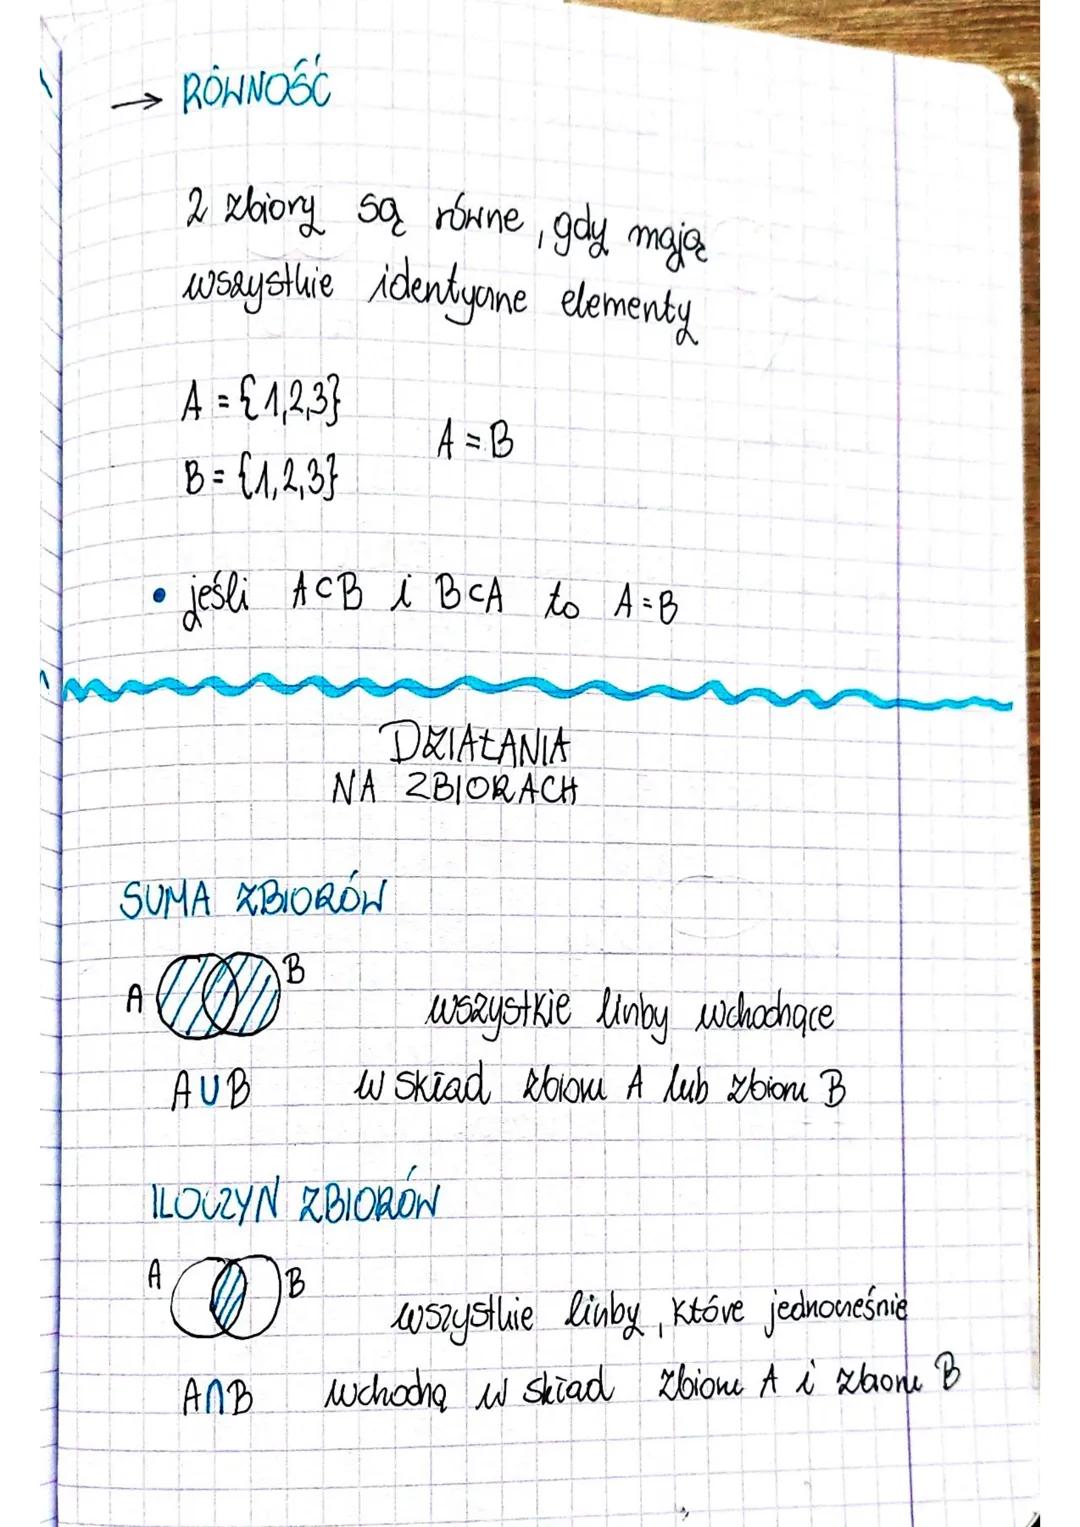 → RÓWNOŚĆ
2 zbiory są równe, gdy mają
wszystkie identyczne elementy
A = {1,2,3}
A = B
B = {1,2,3}
• jeśli A⊂B i B⊂A to A=B
DZIAŁANIA
NA ZBIORACH
SUMA ZBIORÓW
A B
wszystkie liczby wchodzące
A∪B w skład zbioru A lub zbioru B
ILOCZYN ZBIORÓW
A B
wszystkie liczby, które jednocześnie
A∩B wchodzą w skład zbioru A i zbioru B